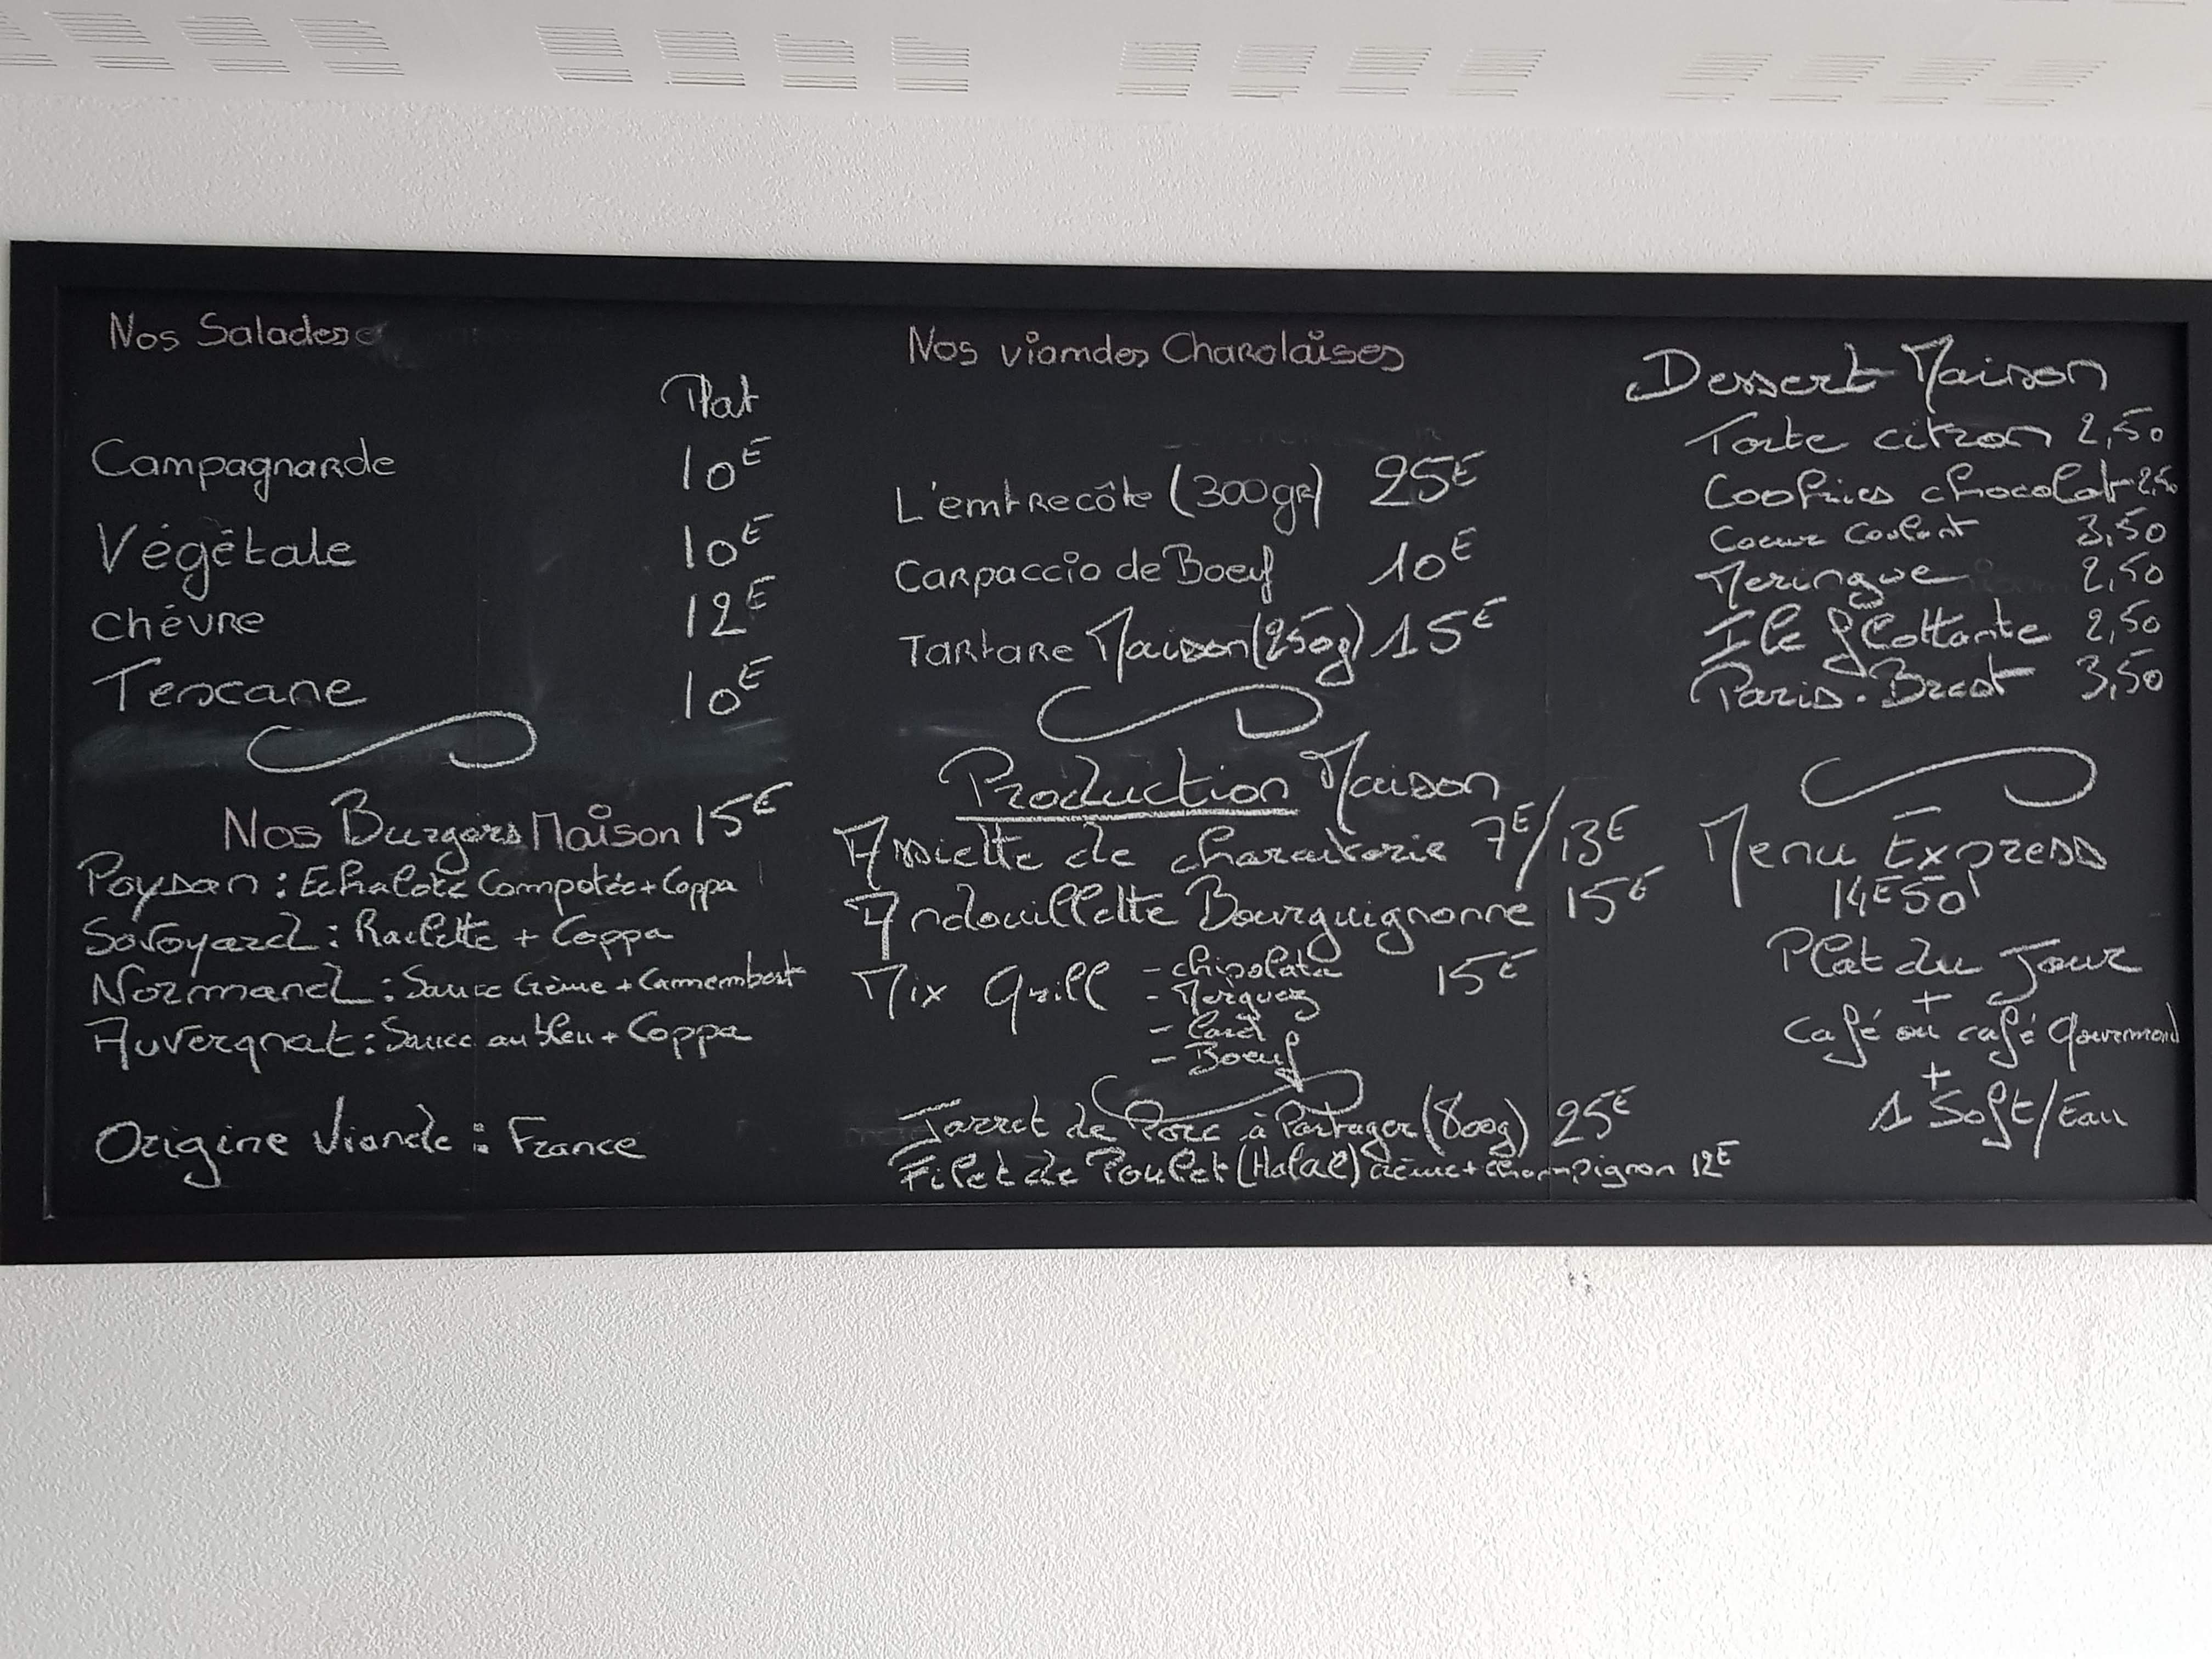 Nos Salades
Plat
Campagnarde 10€
Végétale 10€
chévre 12€
Toscane 10€
Nos Burgers Maison 15€
Paysan : Echalote Compotée + Coppa
Savoyard : Raclette + Coppa
Normand : Sauce Crème + Camembert
Auvergnat : Sauce au bleu + Coppa
Origine Viande : France
Nos viandes Charolaises
L'entrecôte (300gr) 25€
Carpaccio de Boeuf 10€
Tartare Maison (250g) 15€
Production Maison
Assiette de charcuterie 7€/13€
Andouillette Bourguignonne 15€
Mix Grill - chipolata 15€
- Merguez
- Lard
- Boeuf
Jarret de Porc à Partager (800g) 25€
Filet de Poulet (Halal) crème + champignon 12€
Dessert Maison
Tarte citron 2,50
Cookies chocolat 2,50
Coeur Coulant 3,50
Meringue 2,50
Ile flottante 2,50
Paris-Brest 3,50
Menu Express
14€50
Plat du Jour
+
Café ou café Gourmand
+
1 Soft/Eau